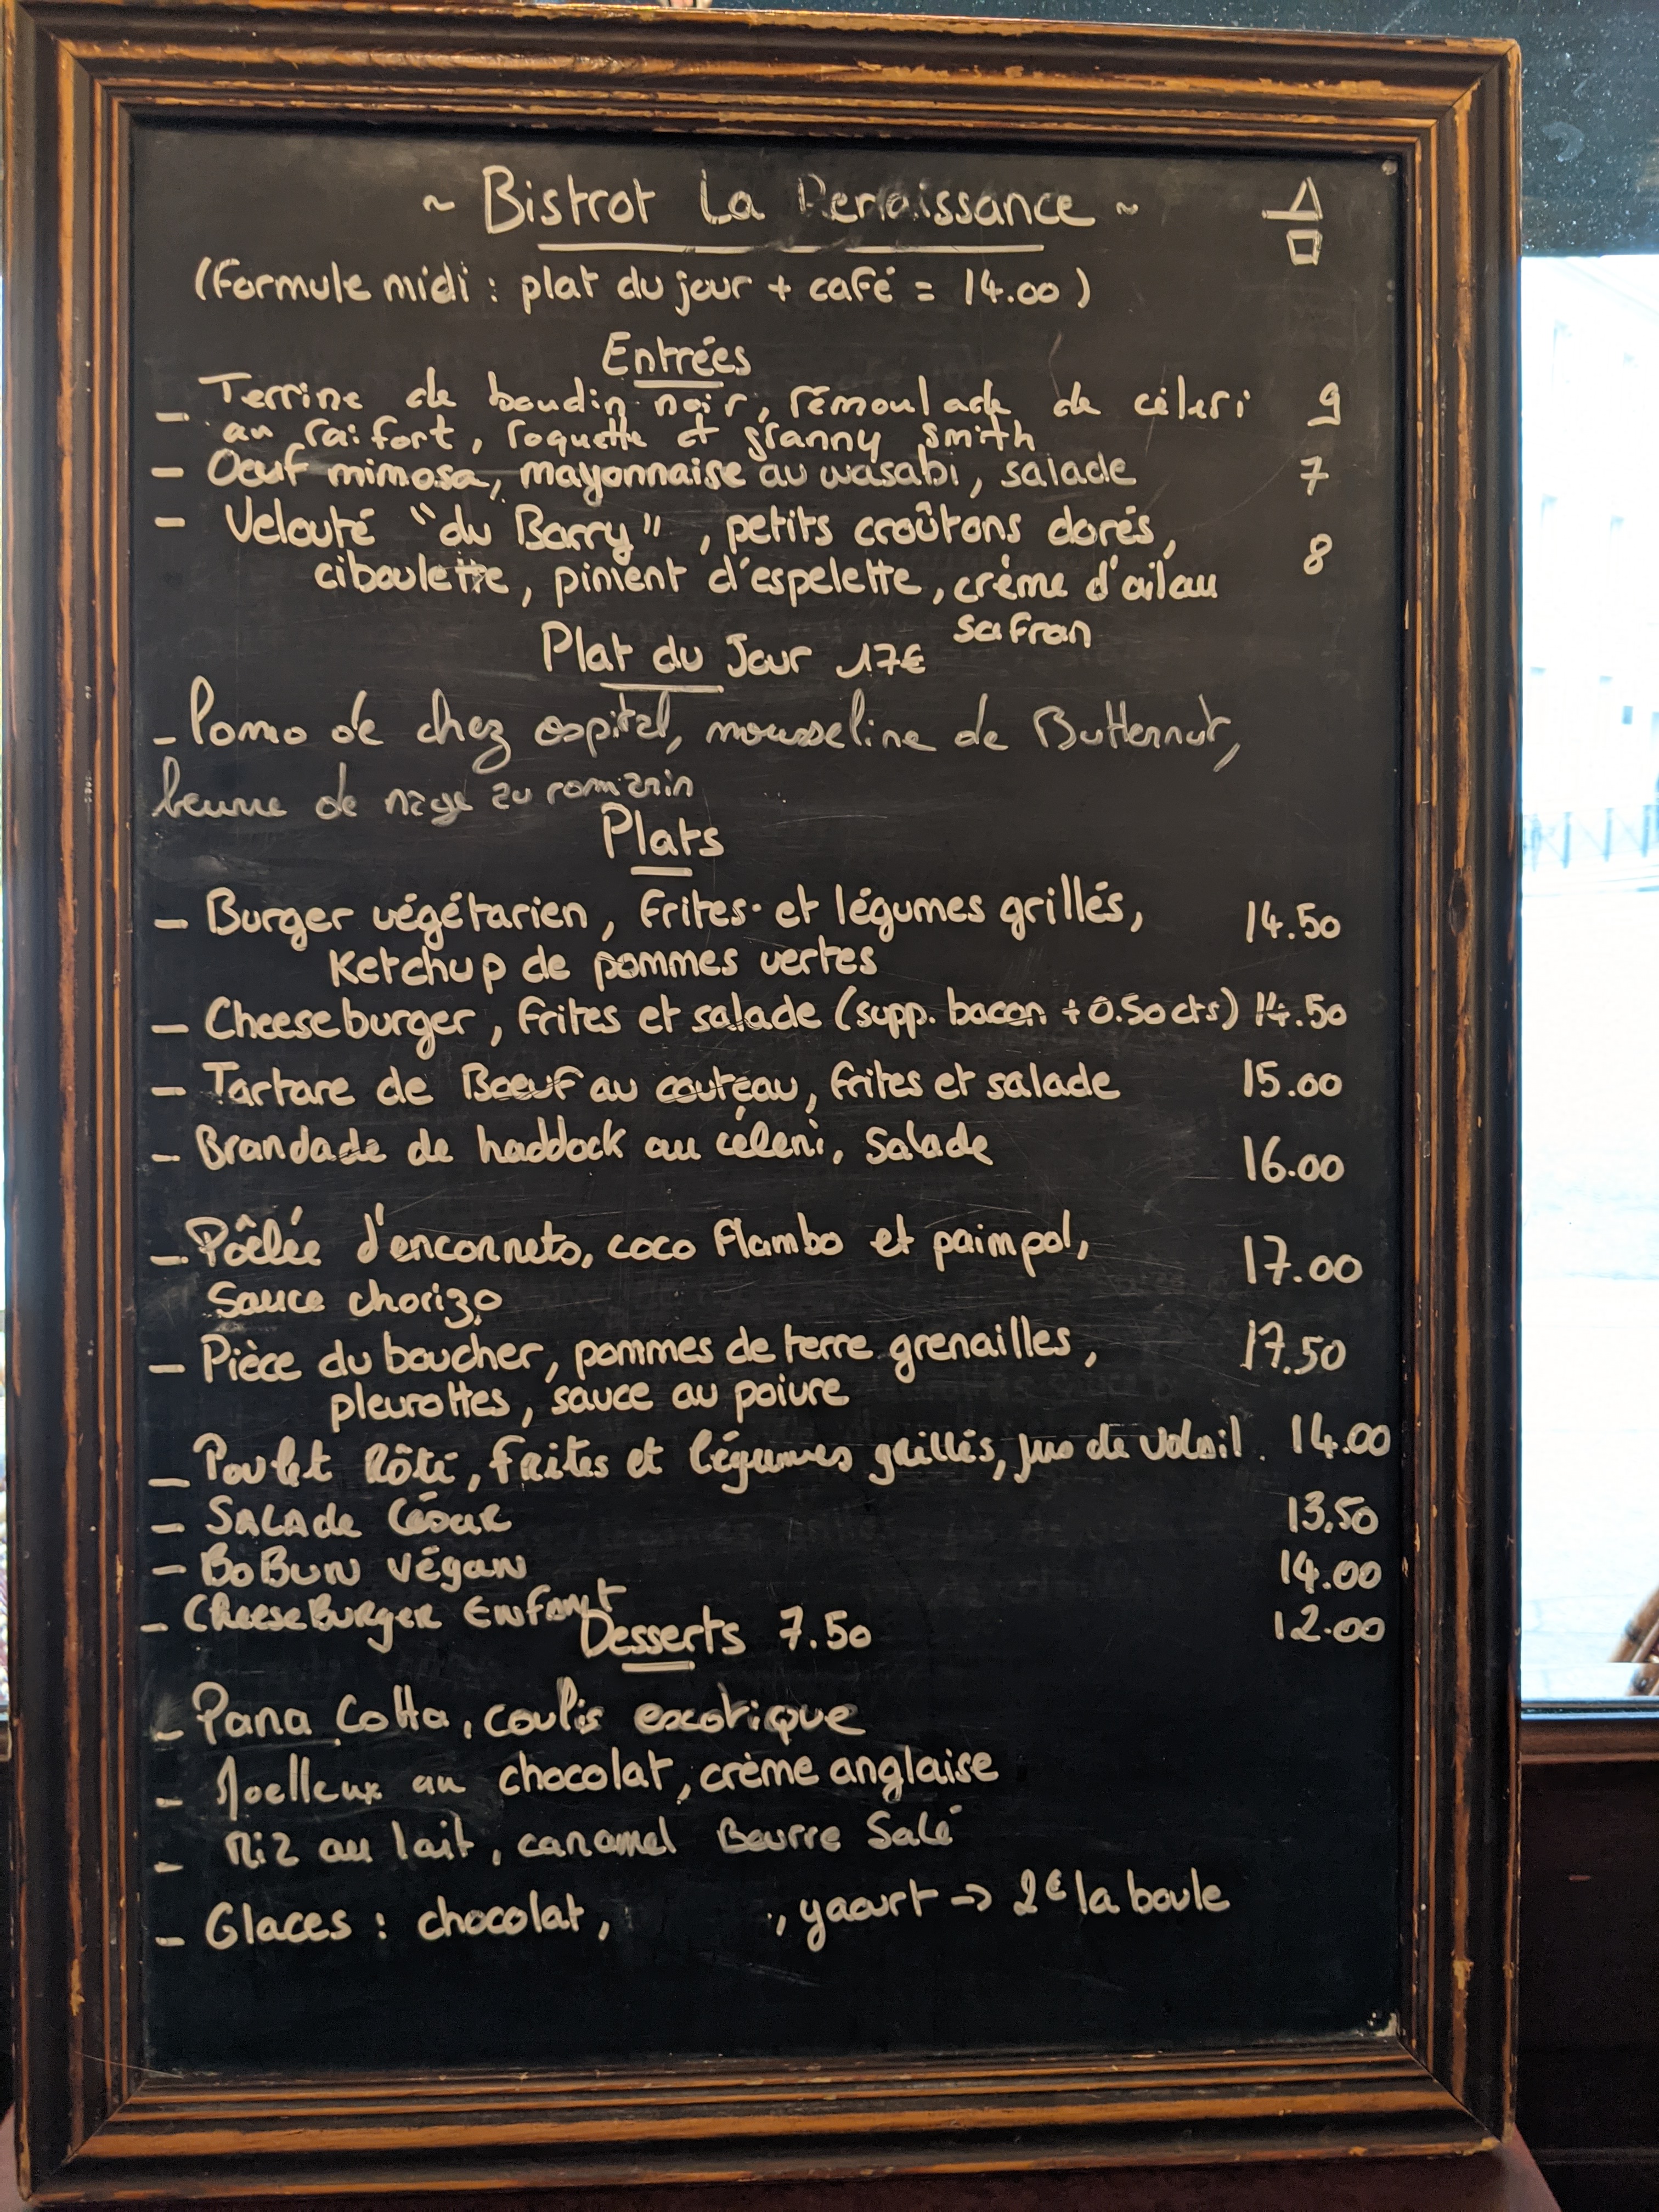 ~ Bistrot La Renaissance ~
(Formule midi : plat du jour + café = 14.00)
Entrées
- Terrine de boudin noir, rémoulade de céleri 9
au raifort, roquette et granny smith
- Oeuf mimosa, mayonnaise au wasabi, salade 7
- Velouté "du Barry", petits croûtons dorés, 8
ciboulette, piment d'espelette, crème d'ail au
safran
Plat du Jour 17€
- Pomo de chez ospital, mousseline de Butternut,
beurre de nage au romarin
Plats
- Burger végétarien, frites et légumes grillés, 14.50
Ketchup de pommes vertes
- Cheeseburger, frites et salade (supp. bacon +0.50cts) 14.50
- Tartare de Boeuf au couteau, frites et salade 15.00
- Brandade de haddock au céleri, Salade 16.00
- Pôêlée d'encornets, coco flambo et paimpol, 17.00
Sauce chorizo
- Pièce du boucher, pommes de terre grenailles, 17.50
pleurottes, sauce au poivre
- Poulet Rôti, frites et légumes grillés, jus de volail. 14.00
- SALAde César 13.50
- BoBun végan 14.00
- CheeseBurger Enfant 12.00
Desserts 7.50
- Pana Cotta, coulis exotique
- Moelleux au chocolat, crème anglaise
- Riz au lait, caramel Beurre Salé
- Glaces : chocolat, , yaourt → 2€ la boule